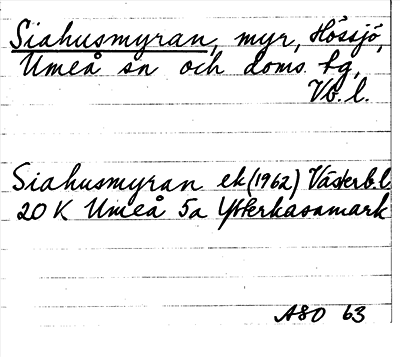 Siahusmyran, myr, Hössjö,
Umeå sn och doms. tg,
Vb. l.
Siahusmyran ek (1962) Västerb. l
20 K Umeå 5a Ytterkasamark
ASO 63